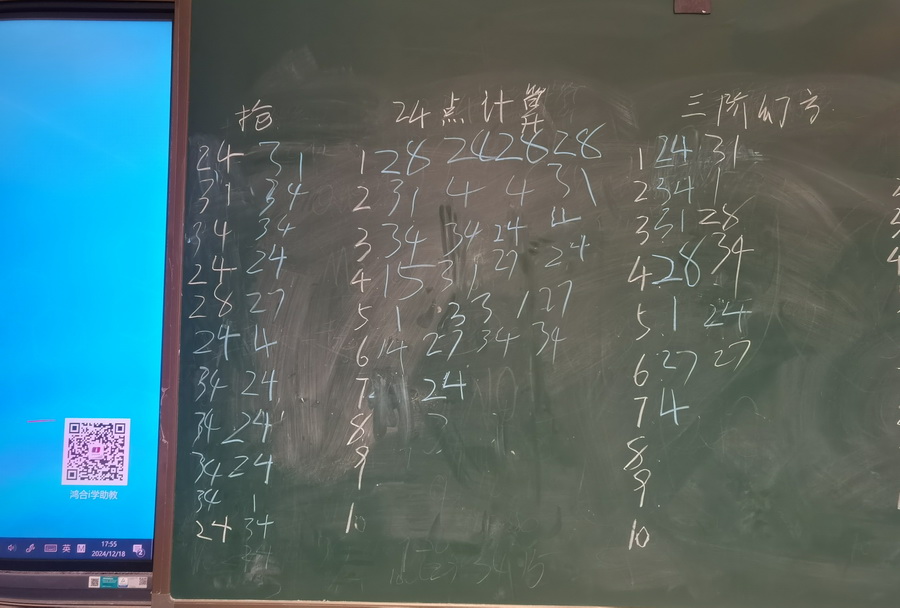 抢
24 31
31 34
34 34
24 24
28 27
24 4
34 24
34 24
34 24
34 1
24 34
24点计算
1 28 28 28 28
2 31 4 4 31
3 34 34 24 4
4 15 31 27 24
5 1 33 1 27
6 14 27 34 34
7 24
8
9
10
三阶幻方
1 24 31
2 34 1
3 31 28
4 28 34
5 1 24
6 27 27
7 4
8
9
10
鸿合i学助教
英
17:55
2024/12/18